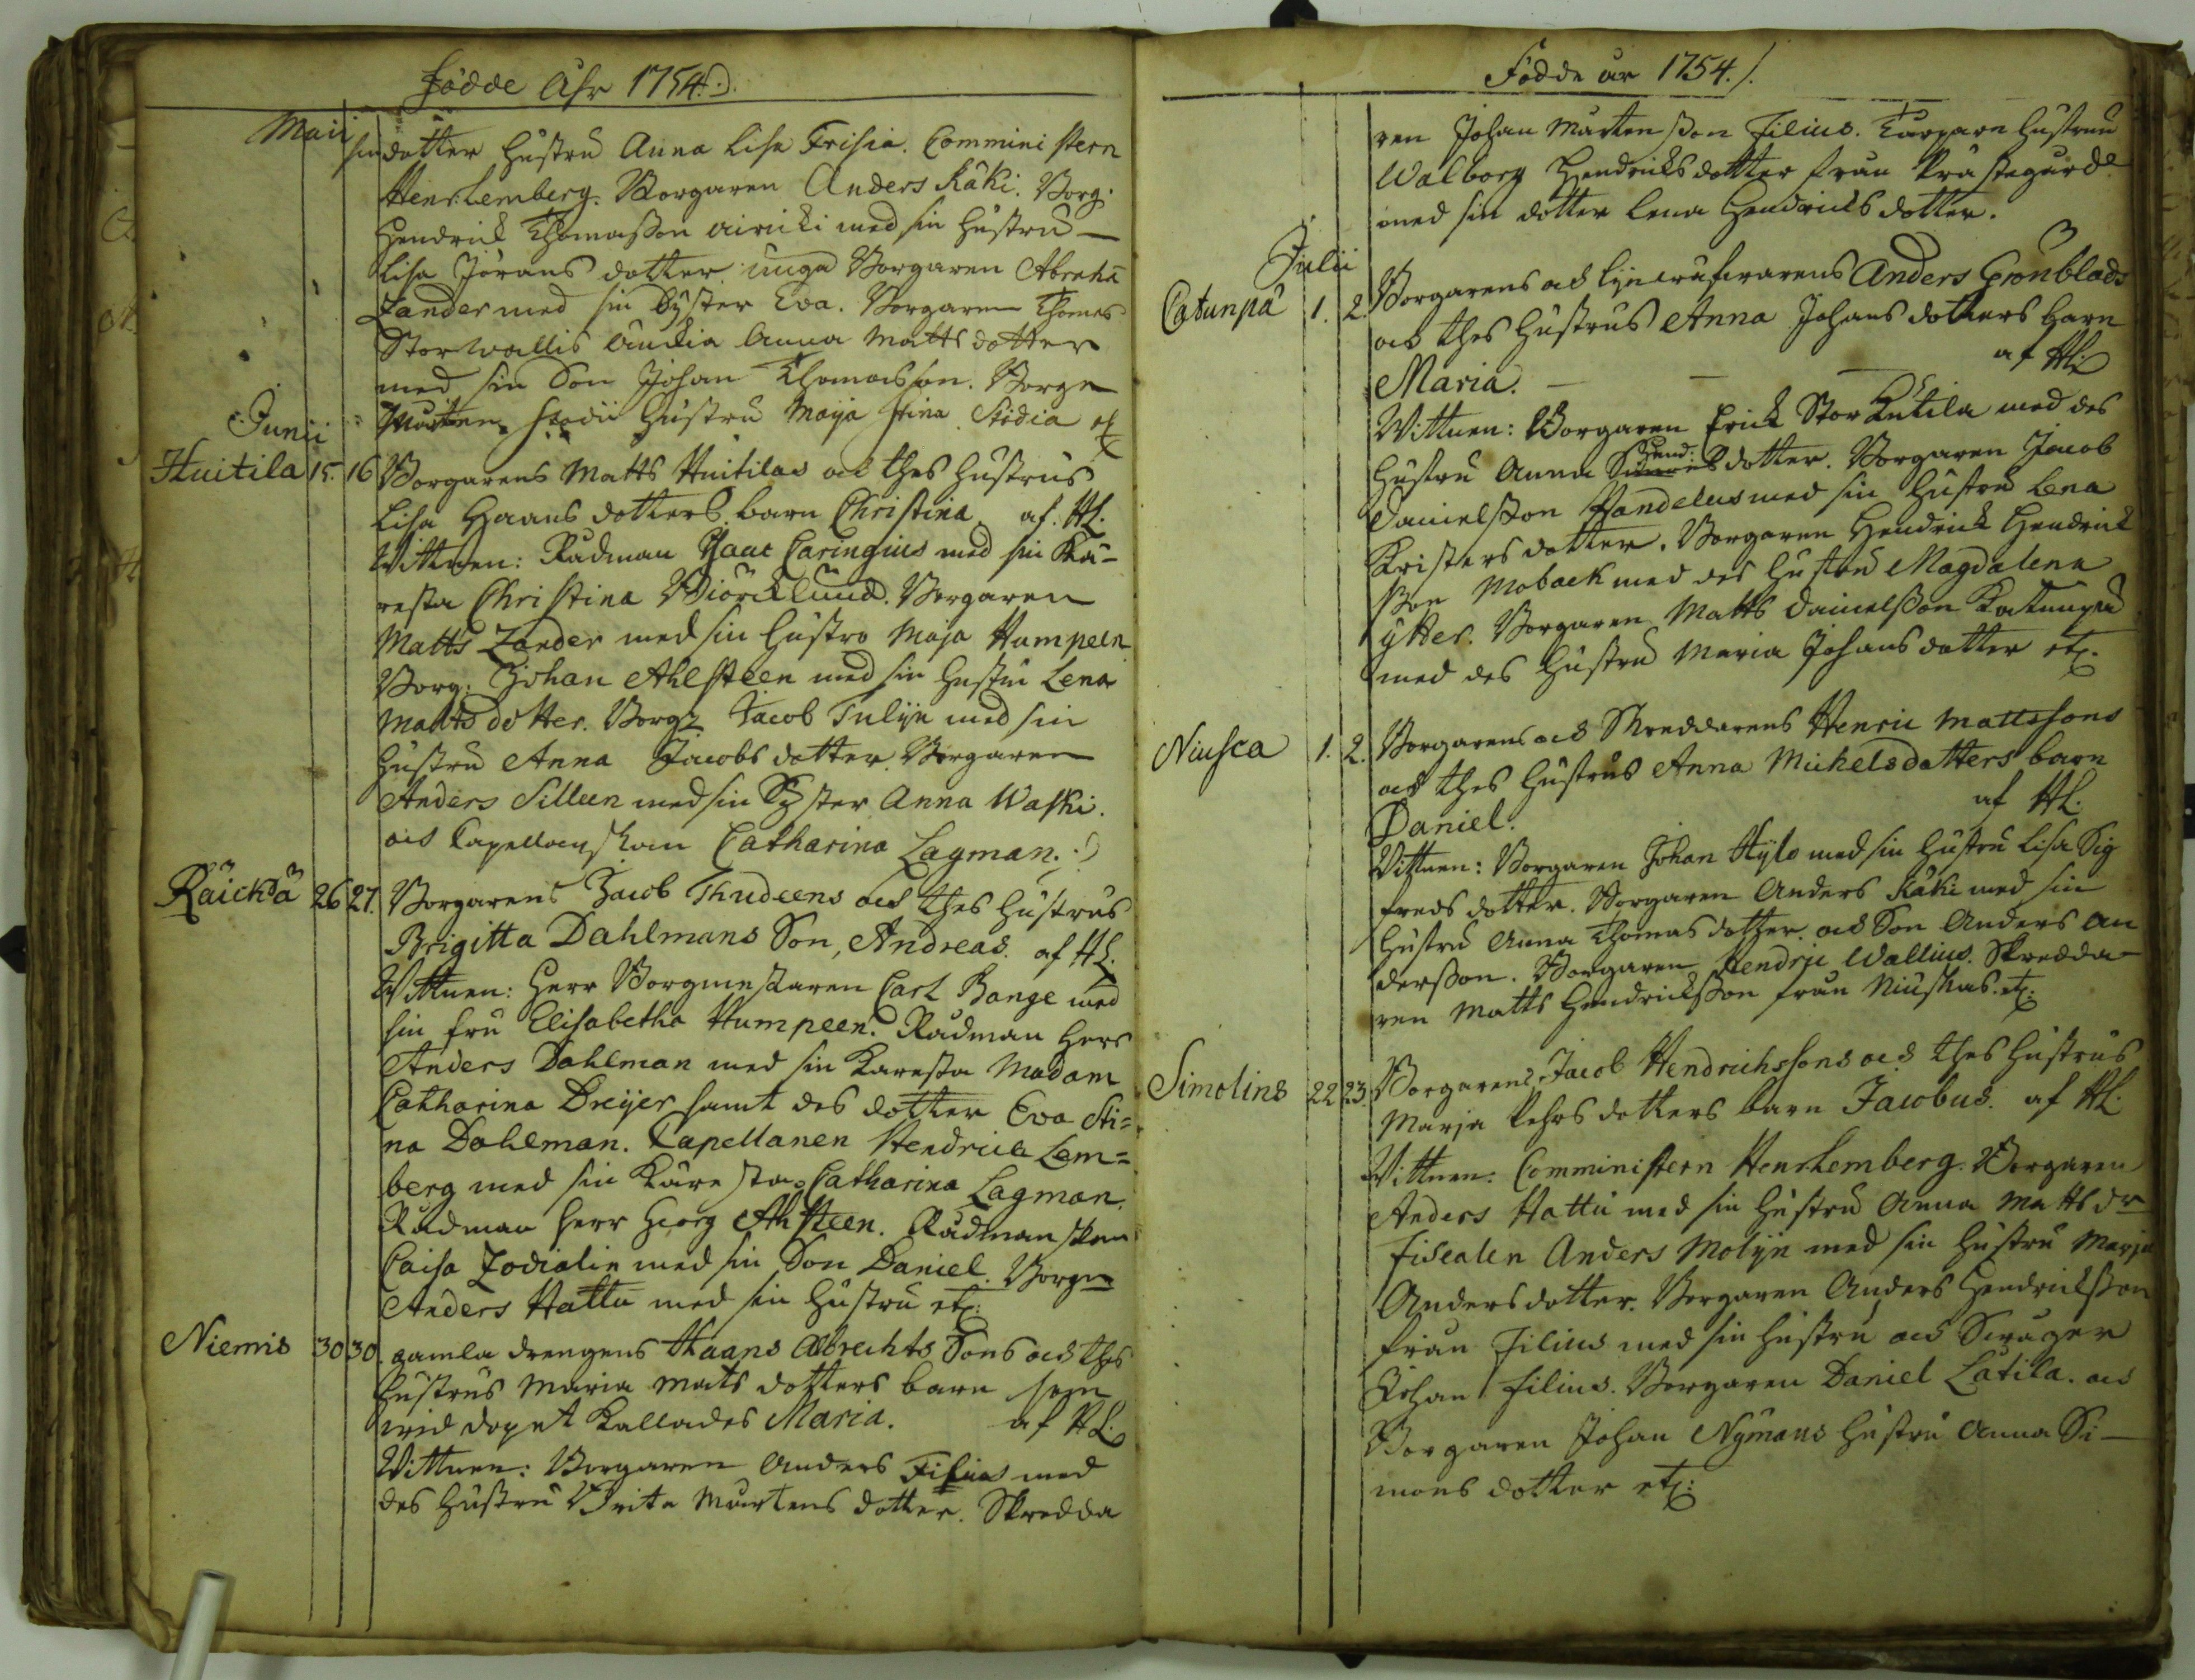 Födde Åhr 1754.
Maii
sin dotter hustru Anna Lisa Frisia. Comministern
Henr: Lemberg. Borgaren Anders Käki. Borg:
Hendrick Thomasson Airicki med sin hustru
Lisa Jörans dotter unga Borgaren Abrahā
Zander med sin Syster Eva. Borgaren Thomas
Storwallis Enckia Anna Matts dotter
med sin Son Johan Thomasson. Borgn
Mårten Stodii hustru Maja Stina Stodia etc
Junii
Huitila 15. 16 Borgarens Matts Huitilas och thes hustrus
Lisa Haans dotters barn Christina af. HL.
Wittnen: Rådman Isaac Caringius med sin Kä-
resta Christina Biörcklund. Borgaren
Matts Zander med sin hustro Maja Humpeen
Borg: Johan Ahlsteen med sin hustru Lena
Matts dotter. Borg: Jacob Tulijn med sin
hustru Anna Jacobs dotter. Borgaren
Anders Silleen med sin Syster Anna Waski.
och Capellanskan Catharina Lagman.
Räickä 26 27. Borgarens Jacob Thudeens och thes hustrus
Brigitta Dahlmans Son, Andreas. af HL.
Wittnen: Herr Borgmestaren Carl Bange med
sin fru Elisabetha Humpeen. Rådman Herr
Anders Dahlman med sin Käresta Madam
Catharina Dreijer samt des dotter Eva Sti=
na Dahlman. Capellanen Hendrich Lem=
berg med sin Käresta Catharina Lagman.
Rådman Herr Georg Ahlsteen. Rådmanskan
Caisa Zodialin med sin Son Daniel. Borgn
Anders Hattu med sin hustru etc:
Niemis 30 30. gamla drengens Haans Abrechts Sons och thes
hustrus Maria Mats dotters barn som
wid dopet Kallades Maria. af HL.
Wittnen: Borgaren Anders Filius med
des hustru Brita Mårtens dotter. Skredda
Födde år 1754.
ren Johan Mårtensson Filius. Torpare hustrun
Walborg Hendricks dotter från Prästegårde
med sin dotter Lena Hendricks dotter.
Julii
Catunpä 1. 2. Borgarens och Anders Grönblads
och thes hustrus Anna Johans dotters barn
Maria. af HL.
Wittnen: Borgaren Erick Stor Kutila med des
hustru Anna Hend: dotter. Borgaren Jacob
Danielsson Pandelus med sin hustru Lena
Kristers dotter. Borgaren Hendrick Hendrick
sson Moback med des hustru Magdalena
ytter. Borgaren Matts Danielsson Kattunpä
med des hustru Maria Johans dotter etc.
Niusca 1. 2. Borgarens och Skreddarens Henric Mattssons
och thes hustrus Anna Michelsdotters barn
Daniel. af HL.
Wittnen: Borgaren Johan Hylo med sin hustru Lisa Sig
freds dotter. Borgaren Anders Käki med sin
hustru Anna Thomas dotter. och Son Anders An
dersson. Borgaren Hendric Wallius. Skredda-
ren Matts Hendricksson från Niuskas. etc:
Simolins 22 23. Borgarens Jacob Hendrichssons och thes hustrus
Marja Pehrs dotters barn Jacobus. af HL.
Wittnen. Comministern Henr Lemberg. Borgaren
Anders Hattu med sin hustru Anna Matts dr
Fiscalen Anders Molijn med sin hustru Marja
Anders dotter. Borgaren Anders Hendricksson
från Filius med sin hustru och Swåger
Johan Filius. Borgaren Daniel Lätila. och
Borgaren Johan Nymans hustru Anna Si-
mons dotter etc: